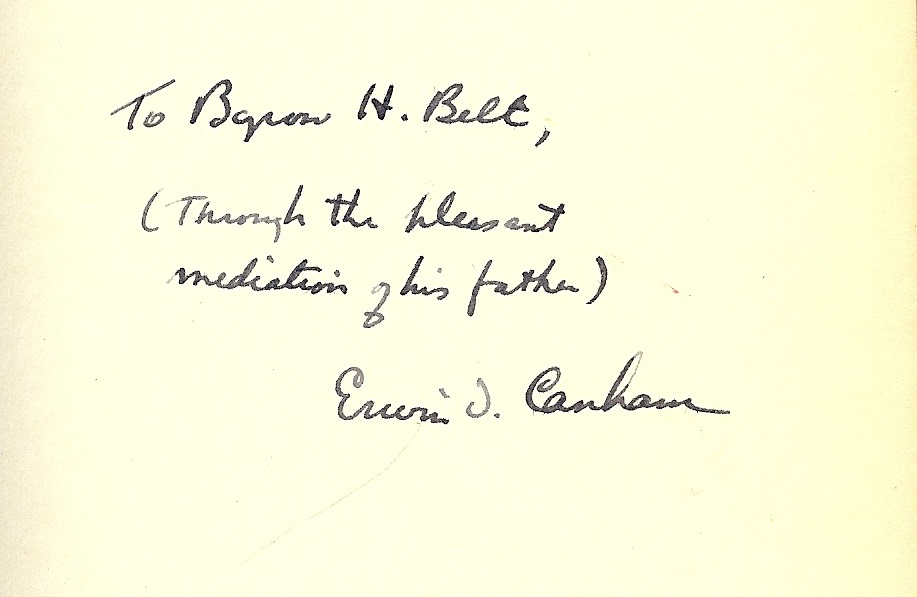 To Byron H. Belt,
(Through the pleasant
mediation of his father)
Erwin D. Canham